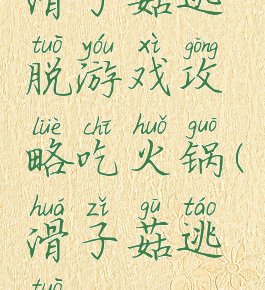 滑子菇逃
tuō yóu xì gōng
脱游戏攻
lüè chī huǒ guō
略吃火锅(
huá zǐ gū táo
滑子菇逃
tuō